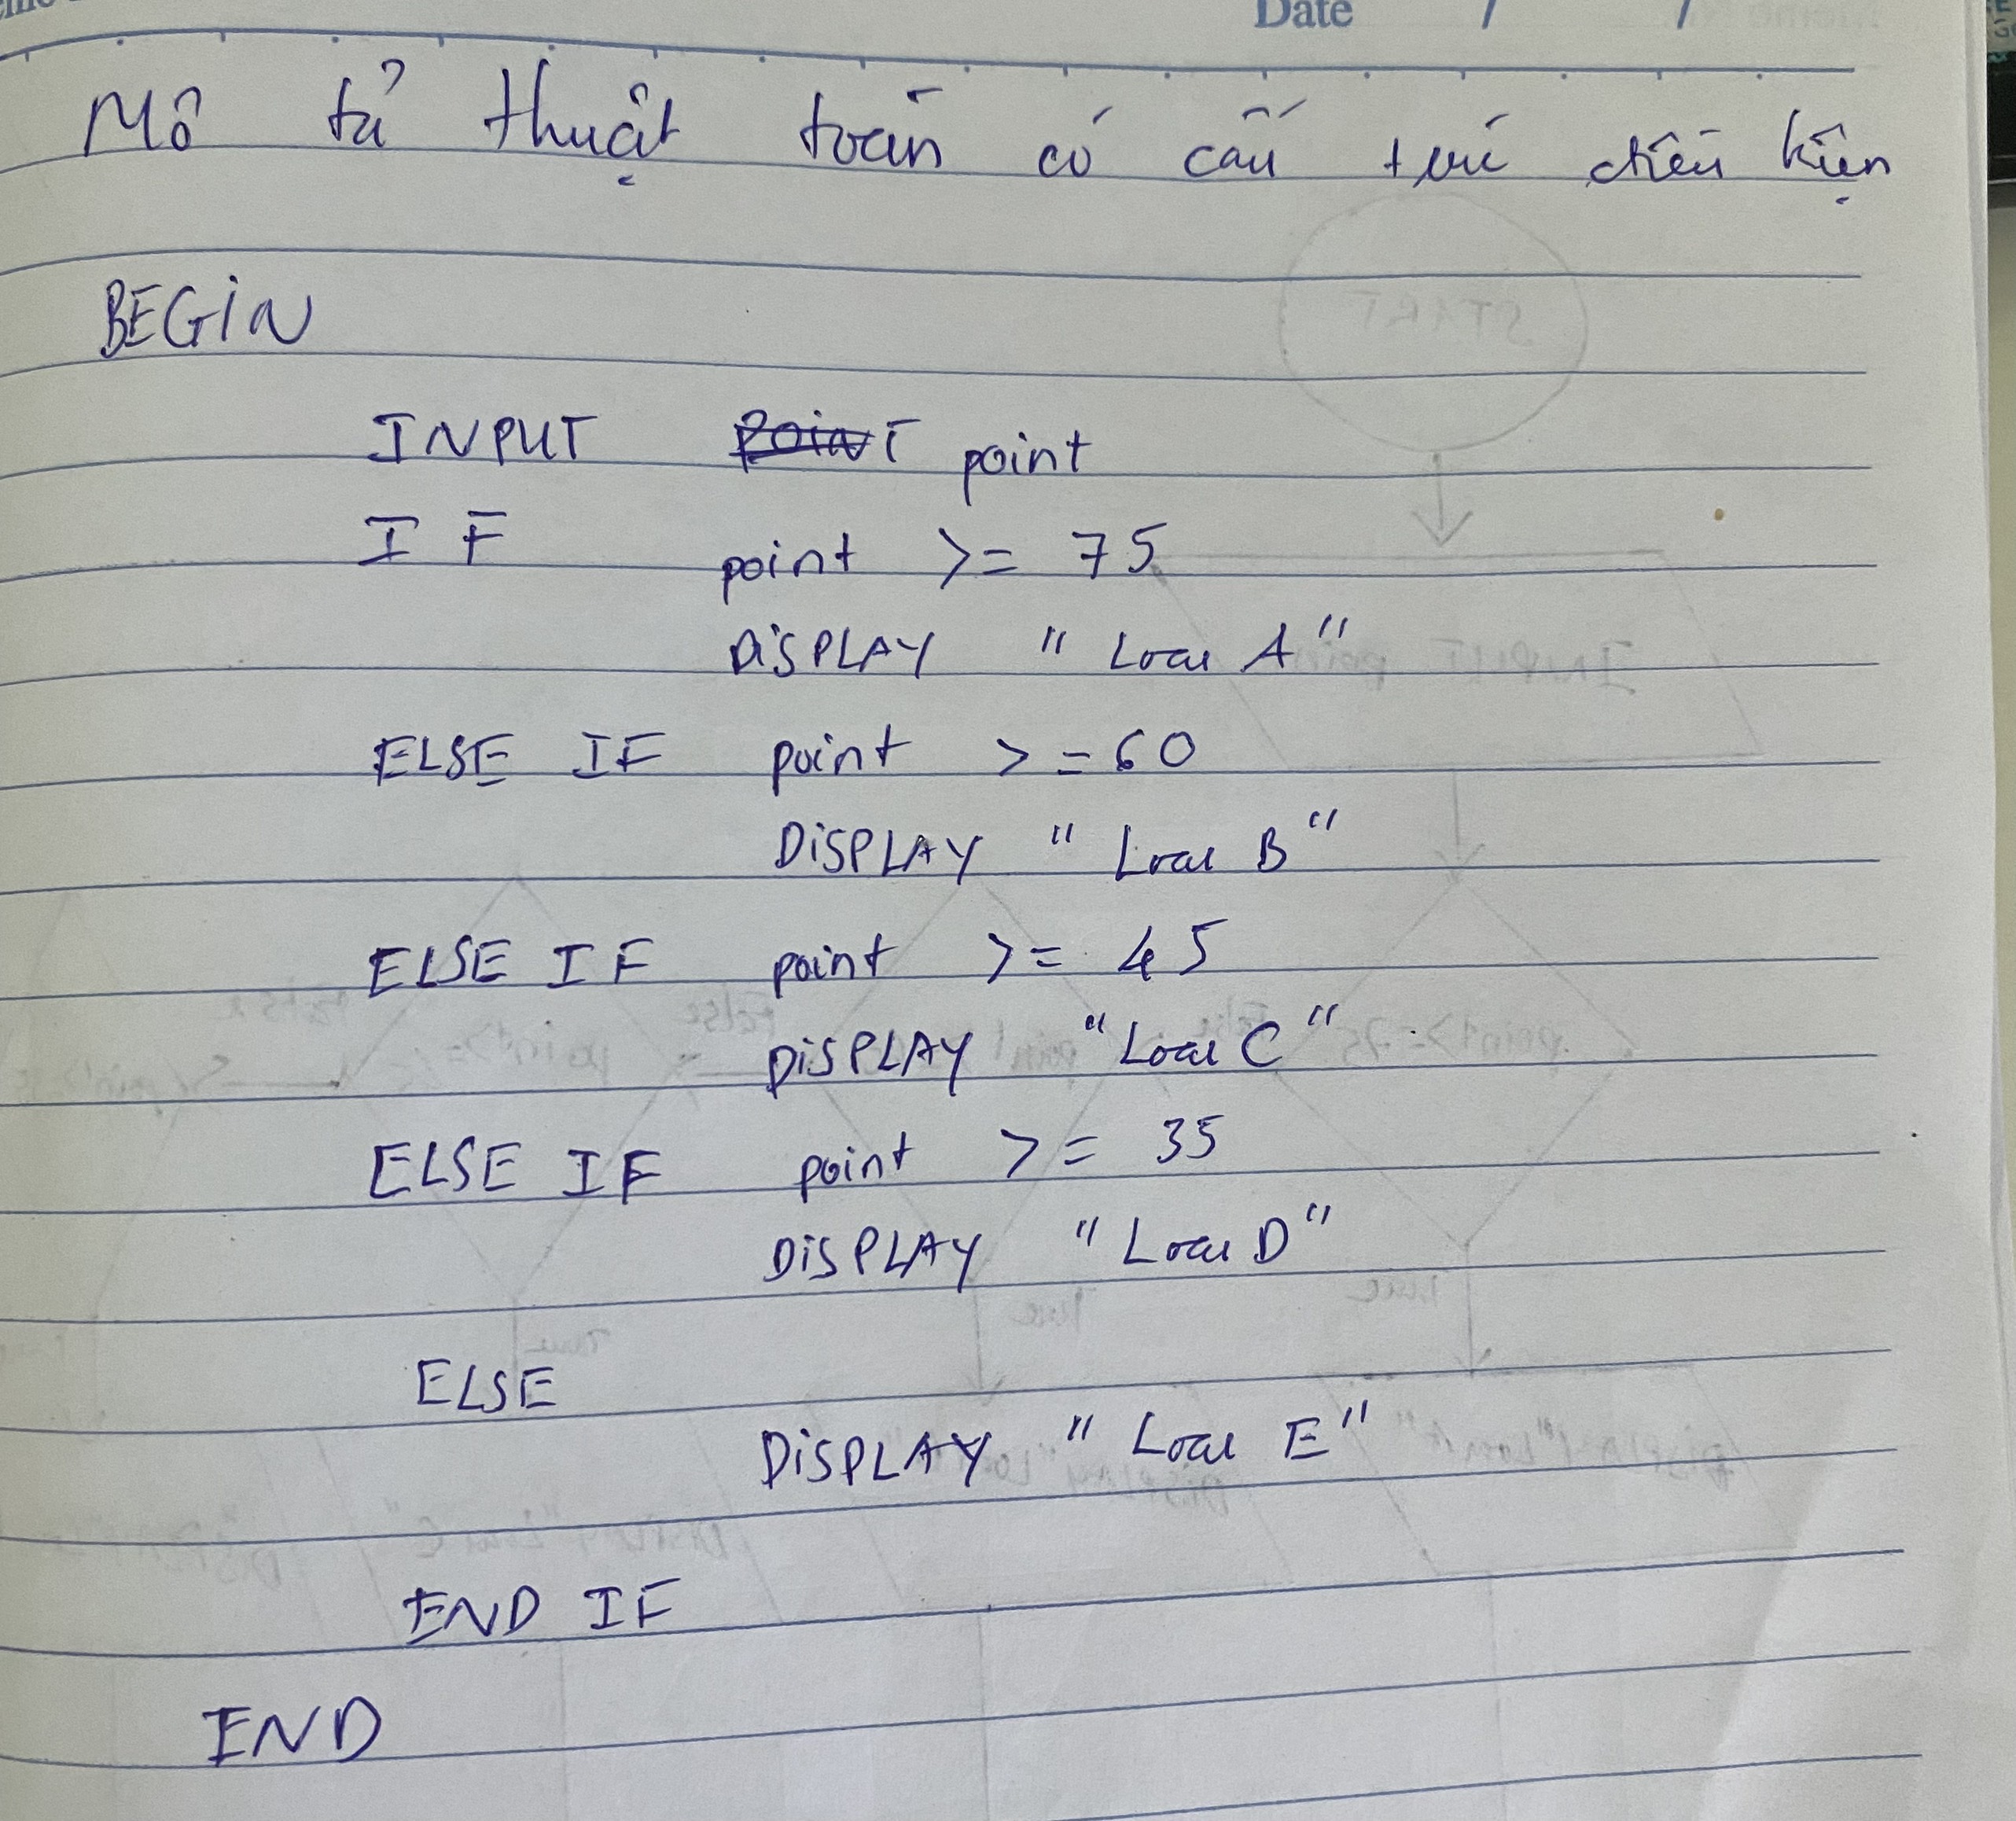 Date / /
Mô tả thuật toán có cấu trúc điều kiện
BEGIN
INPUT point
IF point >= 75
DISPLAY "Loại A"
ELSE IF point >= 60
DISPLAY "Loại B"
ELSE IF point >= 45
DISPLAY "Loại C"
ELSE IF point >= 35
DISPLAY "Loại D"
ELSE
DISPLAY "Loại E"
END IF
END